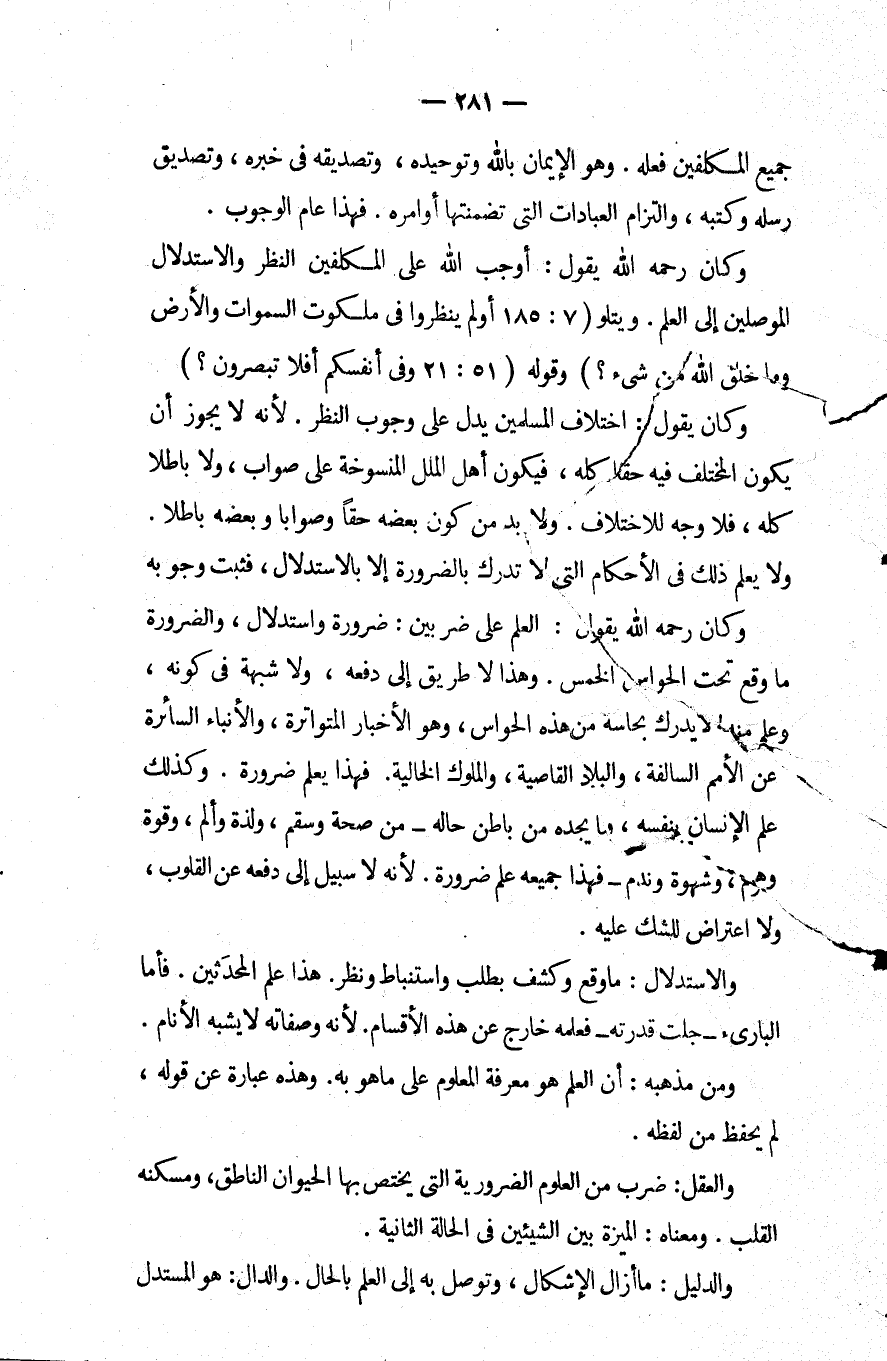 — ٢٨١ —
جميع المكلفين فعله . وهو الإيمان بالله وتوحيده ، وتصديقه فى خبره ، وتصديق
رسله وكتبه ، والتزام العبادات التى تضمنتها أوامره . فهذا عام الوجوب .
وكان رحمه الله يقول : أوجب الله على المكلفين النظر والاستدلال
الموصلين إلى العلم . ويتلو ( ٧ : ١٨٥ أولم ينظروا فى ملكوت السموات والأرض
وما خلق الله من شىء ؟ ) وقوله ( ٥١ : ٢١ وفى أنفسكم أفلا تبصرون ؟ )
وكان يقول : اختلاف المسلمين يدل على وجوب النظر . لأنه لا يجوز أن
يكون المختلف فيه حقا كله ، فيكون أهل الملل المنسوخة على صواب ، ولا باطلا
كله ، فلا وجه للاختلاف . ولا بد من كون بعضه حقاً وصوابا وبعضه باطلا .
ولا يعلم ذلك فى الأحكام التى لا تدرك بالضرورة إلا بالاستدلال ، فثبت وجوبه
وكان رحمه الله يقول : العلم على ضربين : ضرورة واستدلال ، والضرورة
ما وقع تحت الحواس الخمس . وهذا لا طريق إلى دفعه ، ولا شبهة فى كونه ،
وعلم منه لا يدرك بحاسة من هذه الحواس ، وهو الأخبار المتواترة ، والأنباء السائرة
عن الأمم السالفة ، والبلاد القاصية ، والملوك الخالية . فهذا يعلم ضرورة . وكذلك
علم الإنسان بنفسه ، وما يجده من باطن حاله – من صحة وسقم ، ولذة وألم ، وقوة
وهرم ، وشهوة وندم – فهذا جميعه علم ضرورة . لأنه لا سبيل إلى دفعه عن القلوب ،
ولا اعتراض للشك عليه .
والاستدلال : ماوقع وكشف بطلب واستنباط ونظر . هذا علم المحدَثين . فأما
البارىء – جلت قدرته – فعلمه خارج عن هذه الأقسام . لأنه وصفاته لايشبه الأنام .
ومن مذهبه : أن العلم هو معرفة المعلوم على ماهو به . وهذه عبارة عن قوله ،
لم يحفظ من لفظه .
والعقل : ضرب من العلوم الضرورية التى يختص بها الحيوان الناطق ، ومسكنه
القلب . ومعناه : الميزة بين الشيئين فى الحالة الثانية .
والدليل : ماأزال الإشكال ، وتوصل به إلى العلم بالحال . والدال : هو المستدل